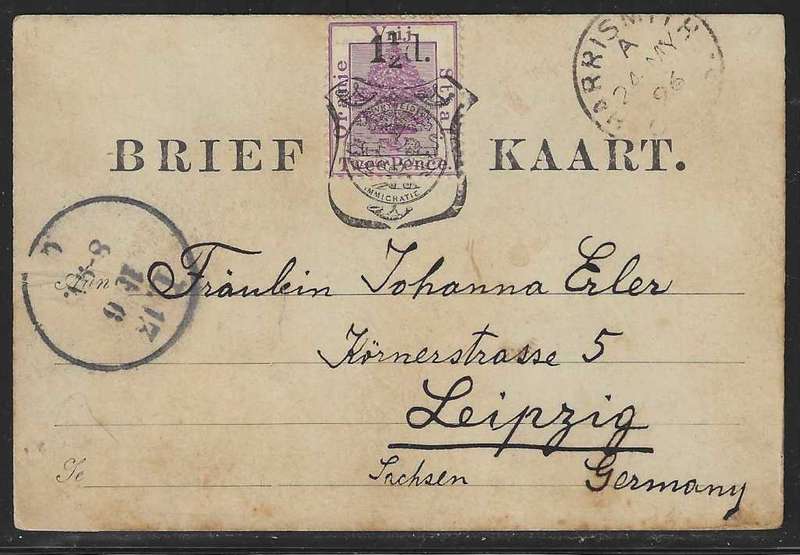 Vrij
1½d.
Oranje
Staat
Twee Pence.
IMMIGRATIE
HARRISMITH
A
24 MY
96
BRIEF KAART.
Aan Fräulein Johanna Erler
Körnerstrasse 5
Leipzig
Te Sachsen Germany